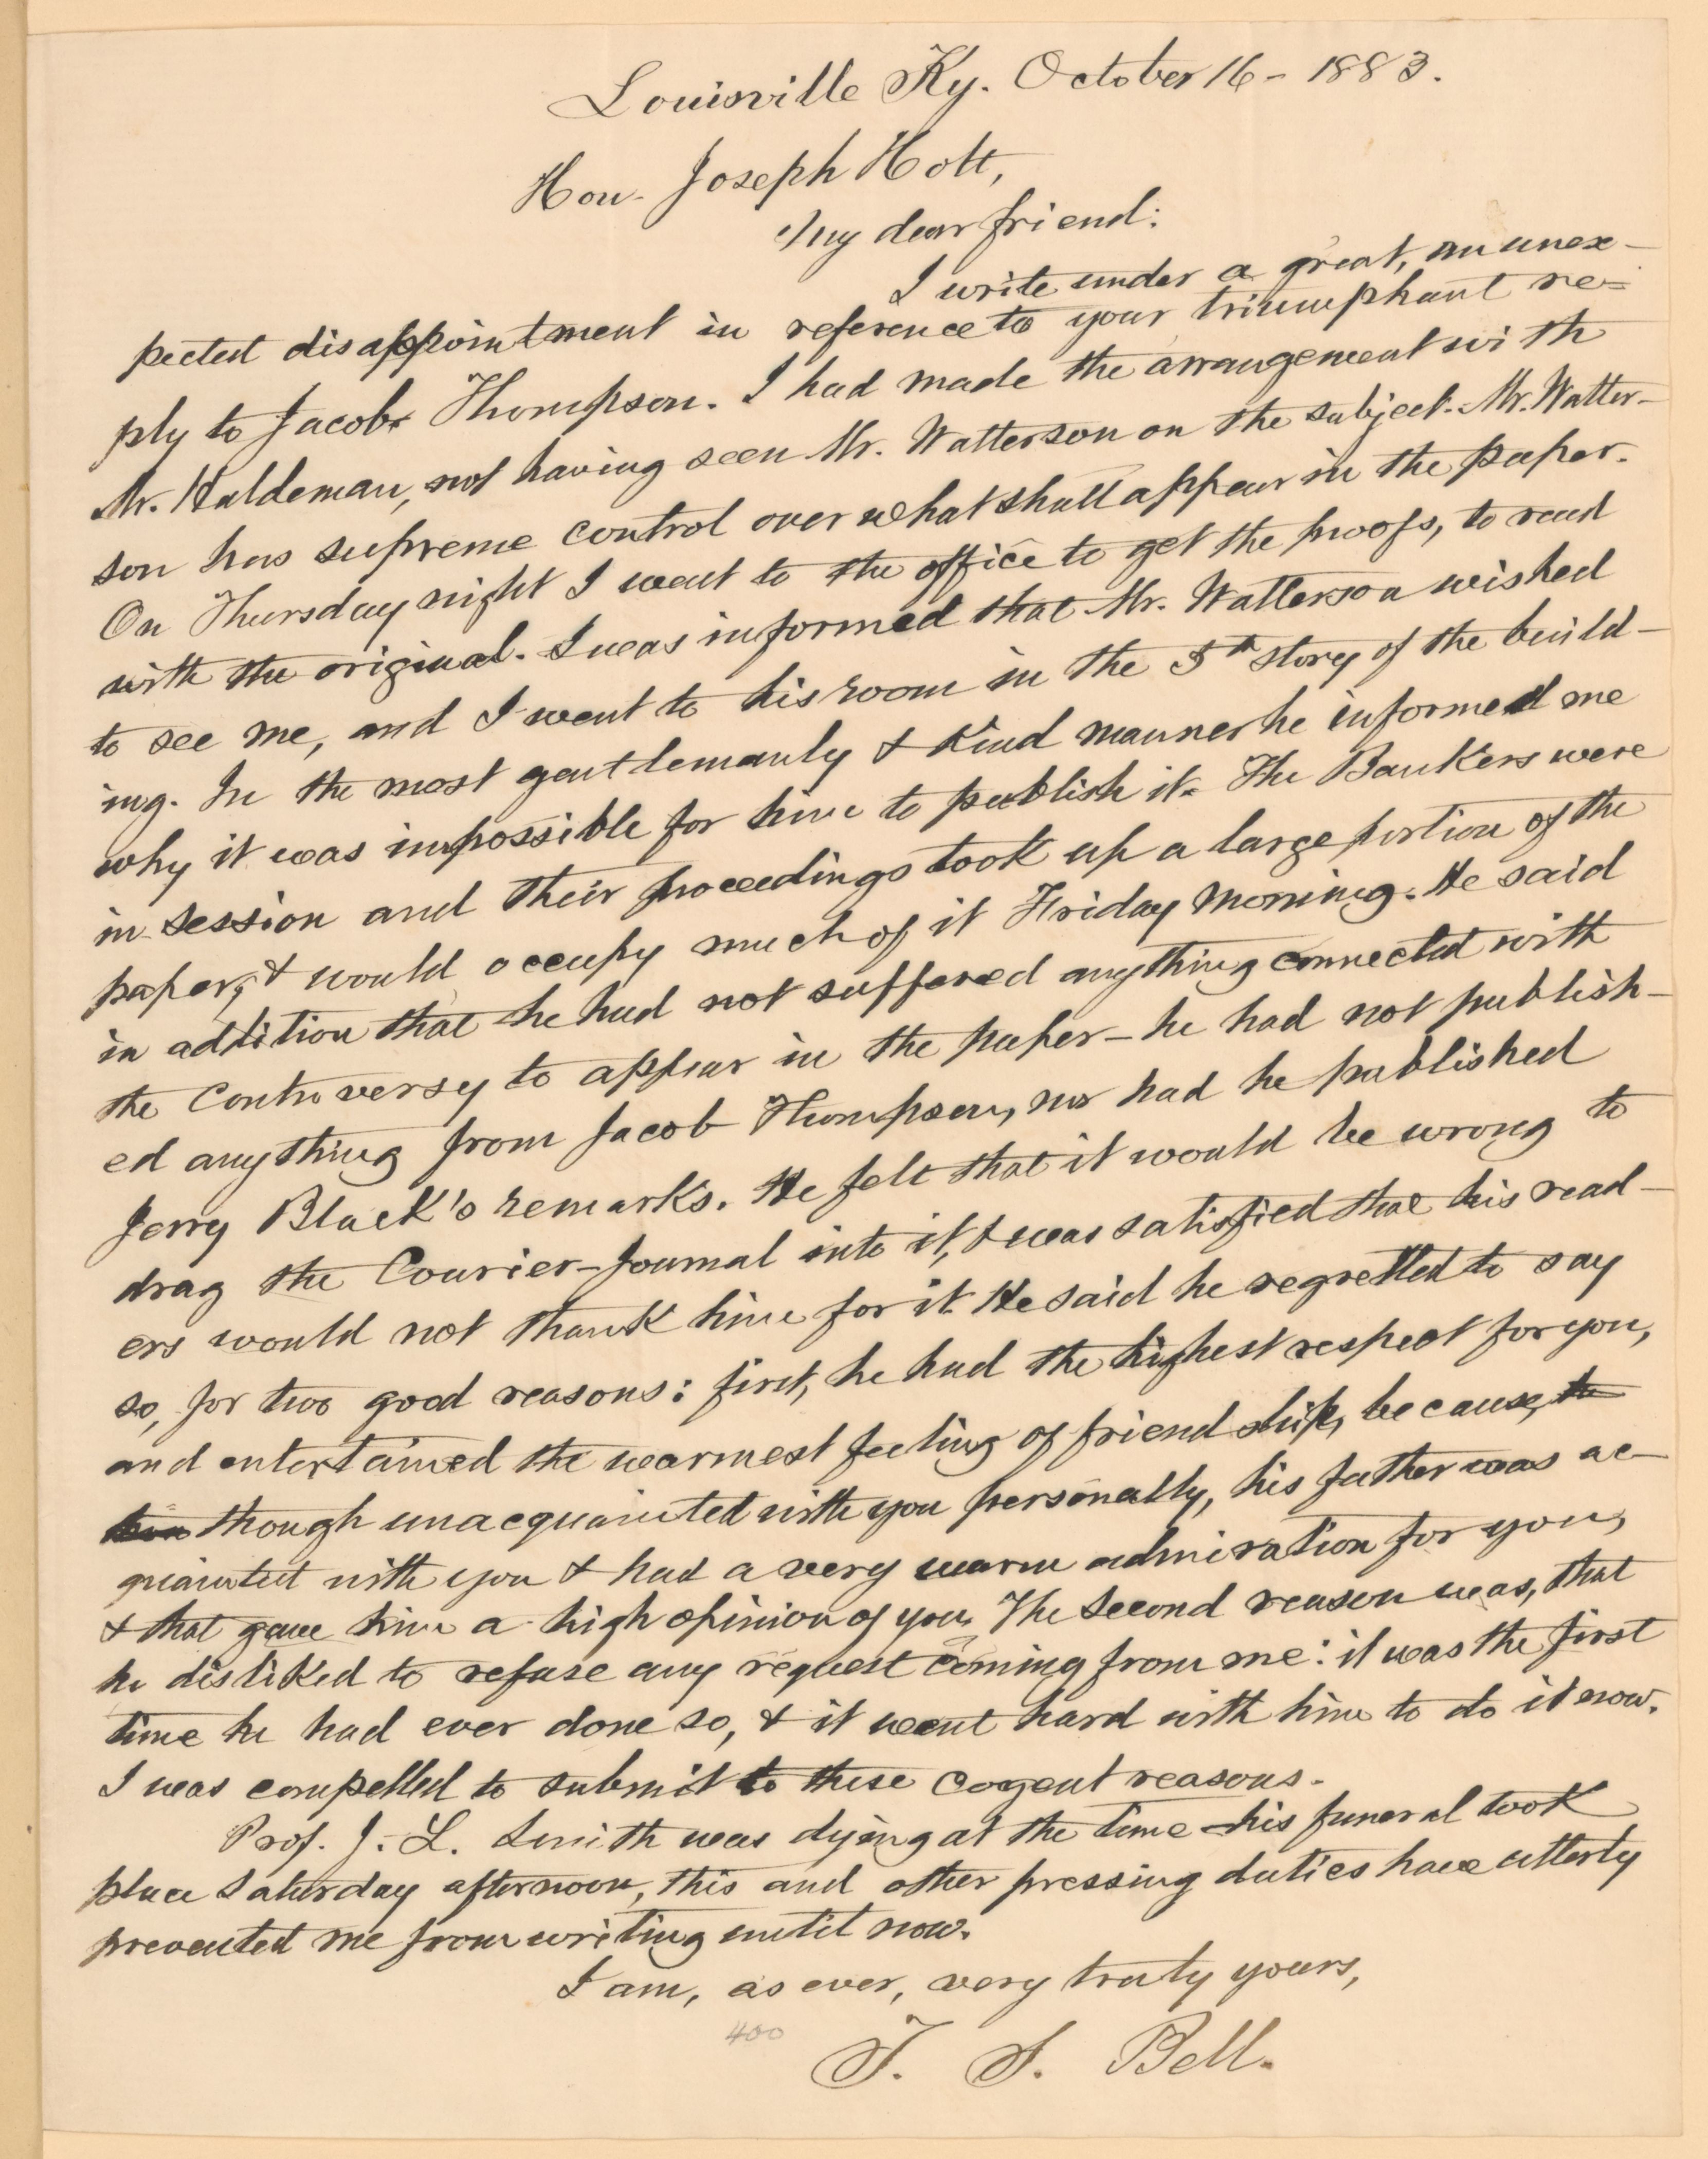 Louisville Ky. October 16 - 1883.
Hon. Joseph Holt,
My dear friend:
I write under a great, an unex-
pected disappointment in reference to your triumphant re=
ply to Jacob Thompson. I had made the arrangement with
Mr. Haldeman, not having seen Mr. Watterson on the subject. Mr. Watter-
son has supreme control over what shall appear in the paper.
On Thursday night I went to the office to get the proofs, to read
with the original. I was informed that Mr. Watterson wished
to see me, and I went to his room in the 5th story of the build-
ing. In the most gentlemanly & kind manner he informed me
why it was impossible for him to publish it. The Bankers were
in session and their proceedings took up a large portion of the
paper, & would occupy much of it Friday morning. He said
in addition that he had not suffered anything connected with
the controversy to appear in the paper - he had not publish-
ed anything from Jacob Thompson, nor had he published
Jerry Black's remarks. He felt that it would be wrong to
drag the Courier-Journal into it, & was satisfied that his read-
ers would not thank him for it. He said he regretted to say
so, for two good reasons: first, he had the highest respect for you,
and entertained the warmest feeling of friendship, because,
though unacquainted with you personally, his father was ac-
quainted with you & had a very warm admiration for you,
& that gave him a high opinion of you. The second reason was, that
he disliked to refuse any request coming from me: it was the first
time he had ever done so, & it went hard with him to do it now.
I was compelled to submit to these cogent reasons.
Prof. J. L. Smith was dying at the time - his funeral took
place Saturday afternoon, this and other pressing duties have utterly
prevented me from writing until now.
I am, as ever, very truly yours,
400
T. S. Bell.